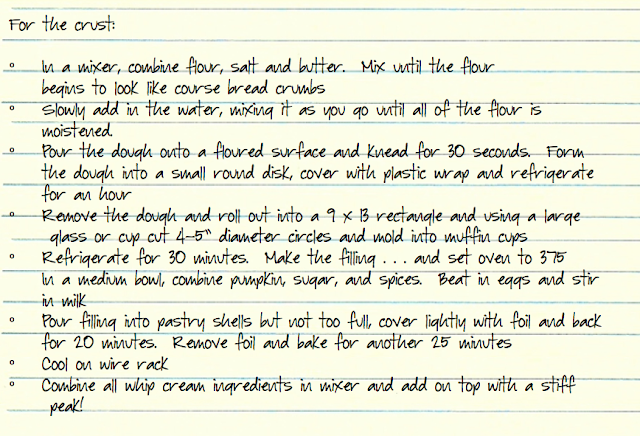 For the crust:
° In a mixer, combine flour, salt and butter. Mix until the flour
begins to look like course bread crumbs
° Slowly add in the water, mixing it as you go until all of the flour is
moistened.
° Pour the dough onto a floured surface and knead for 30 seconds. Form
the dough into a small round disk, cover with plastic wrap and refrigerate
for an hour
° Remove the dough and roll out into a 9 x 13 rectangle and using a large
glass or cup cut 4-5" diameter circles and mold into muffin cups
° Refrigerate for 30 minutes. Make the filling . . . and set oven to 375
In a medium bowl, combine pumpkin, sugar, and spices. Beat in eggs and stir
in milk
° Pour filling into pastry shells but not too full, cover lightly with foil and back
for 20 minutes. Remove foil and bake for another 25 minutes
° Cool on wire rack
° Combine all whip cream ingredients in mixer and add on top with a stiff
peak!